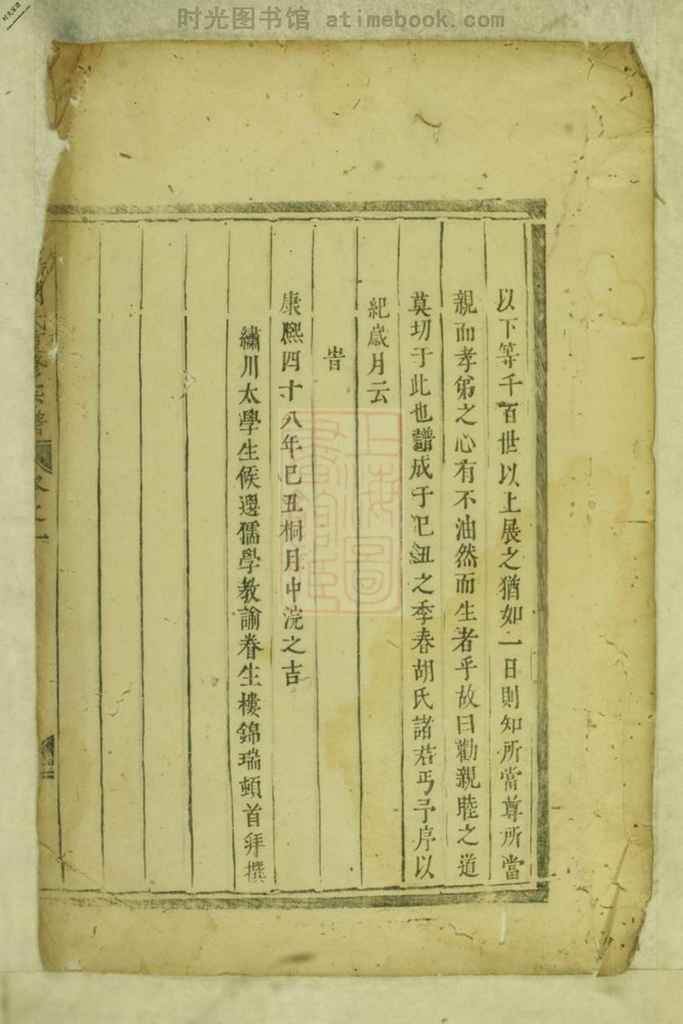 时光图书馆 atimebook.com
以下等千百世以上展之猶如一日則知所當尊所當
親而孝弟之心有不油然而生者乎故曰勸親睦之道
莫切于此也譜成于己丑之季春胡氏諸君丐予序以
紀歲月云
旹
康熙四十八年己丑桐月中浣之吉
繡川太學生候選儒學教諭眷生樓錦瑞頓首拜撰
宗譜
卷之一